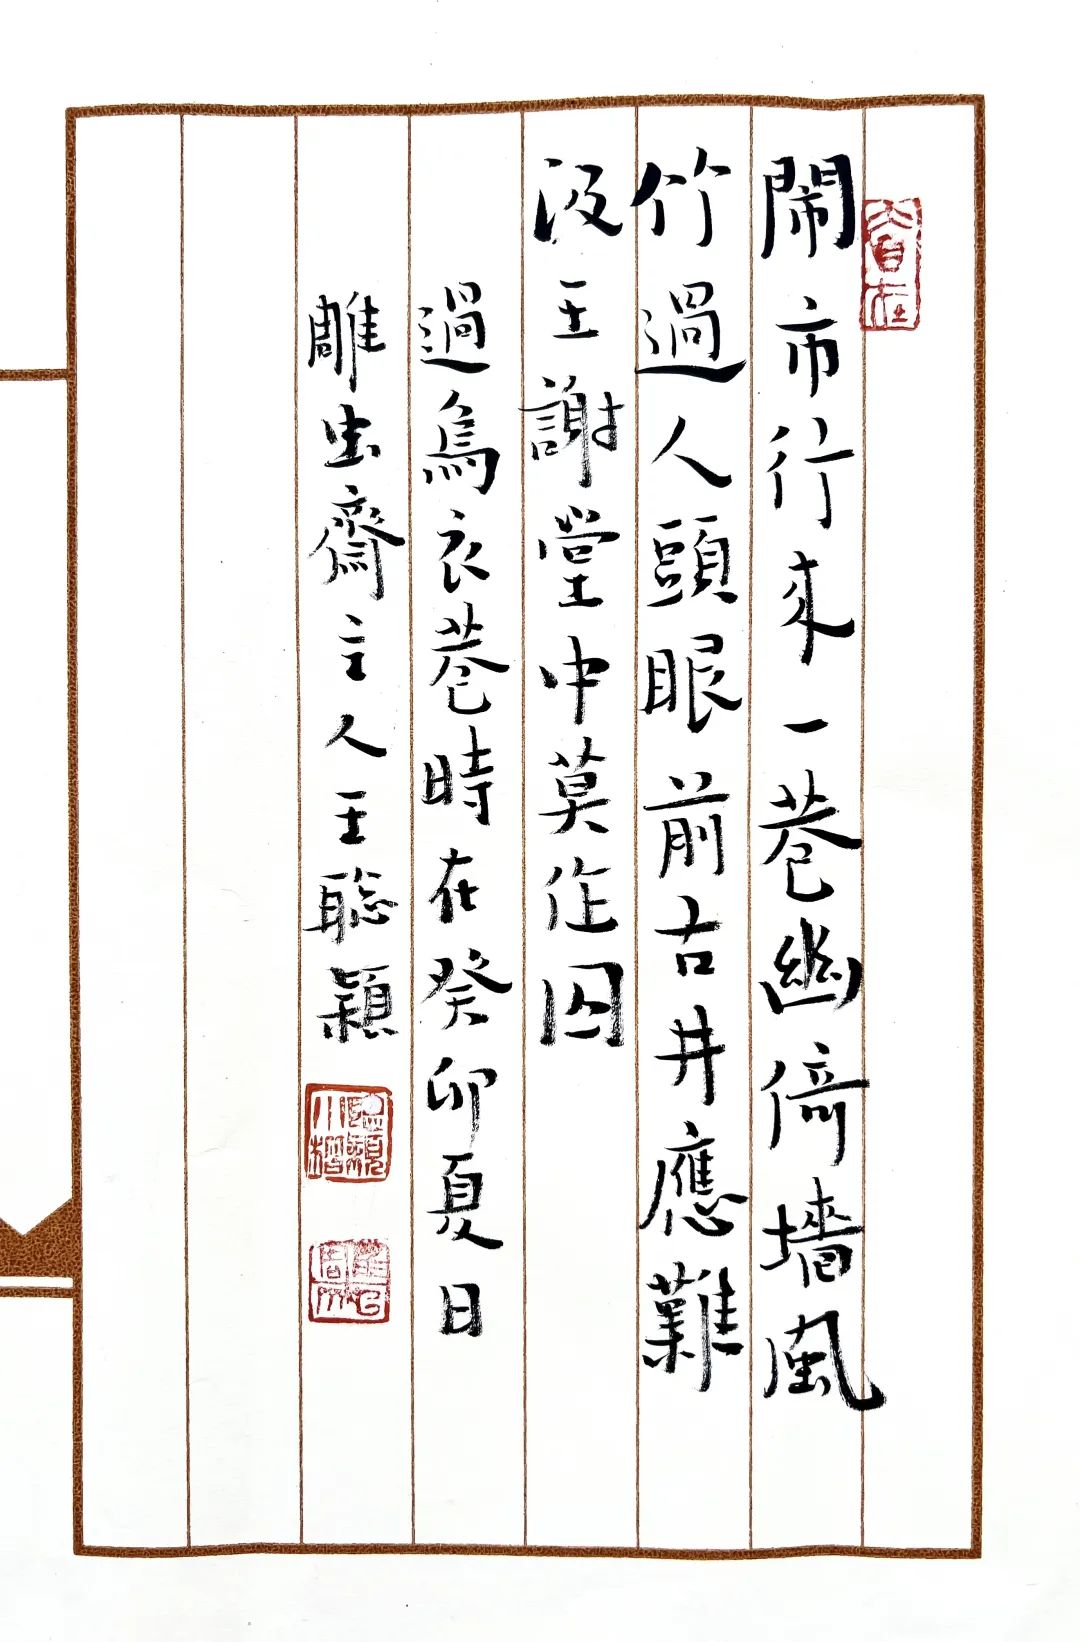 鬧市行來一巷幽倚墻風
竹過人頭眼前古井應難
汲王謝堂中莫作囚
過烏衣巷時在癸卯夏日
雕虫齋主人王聰穎